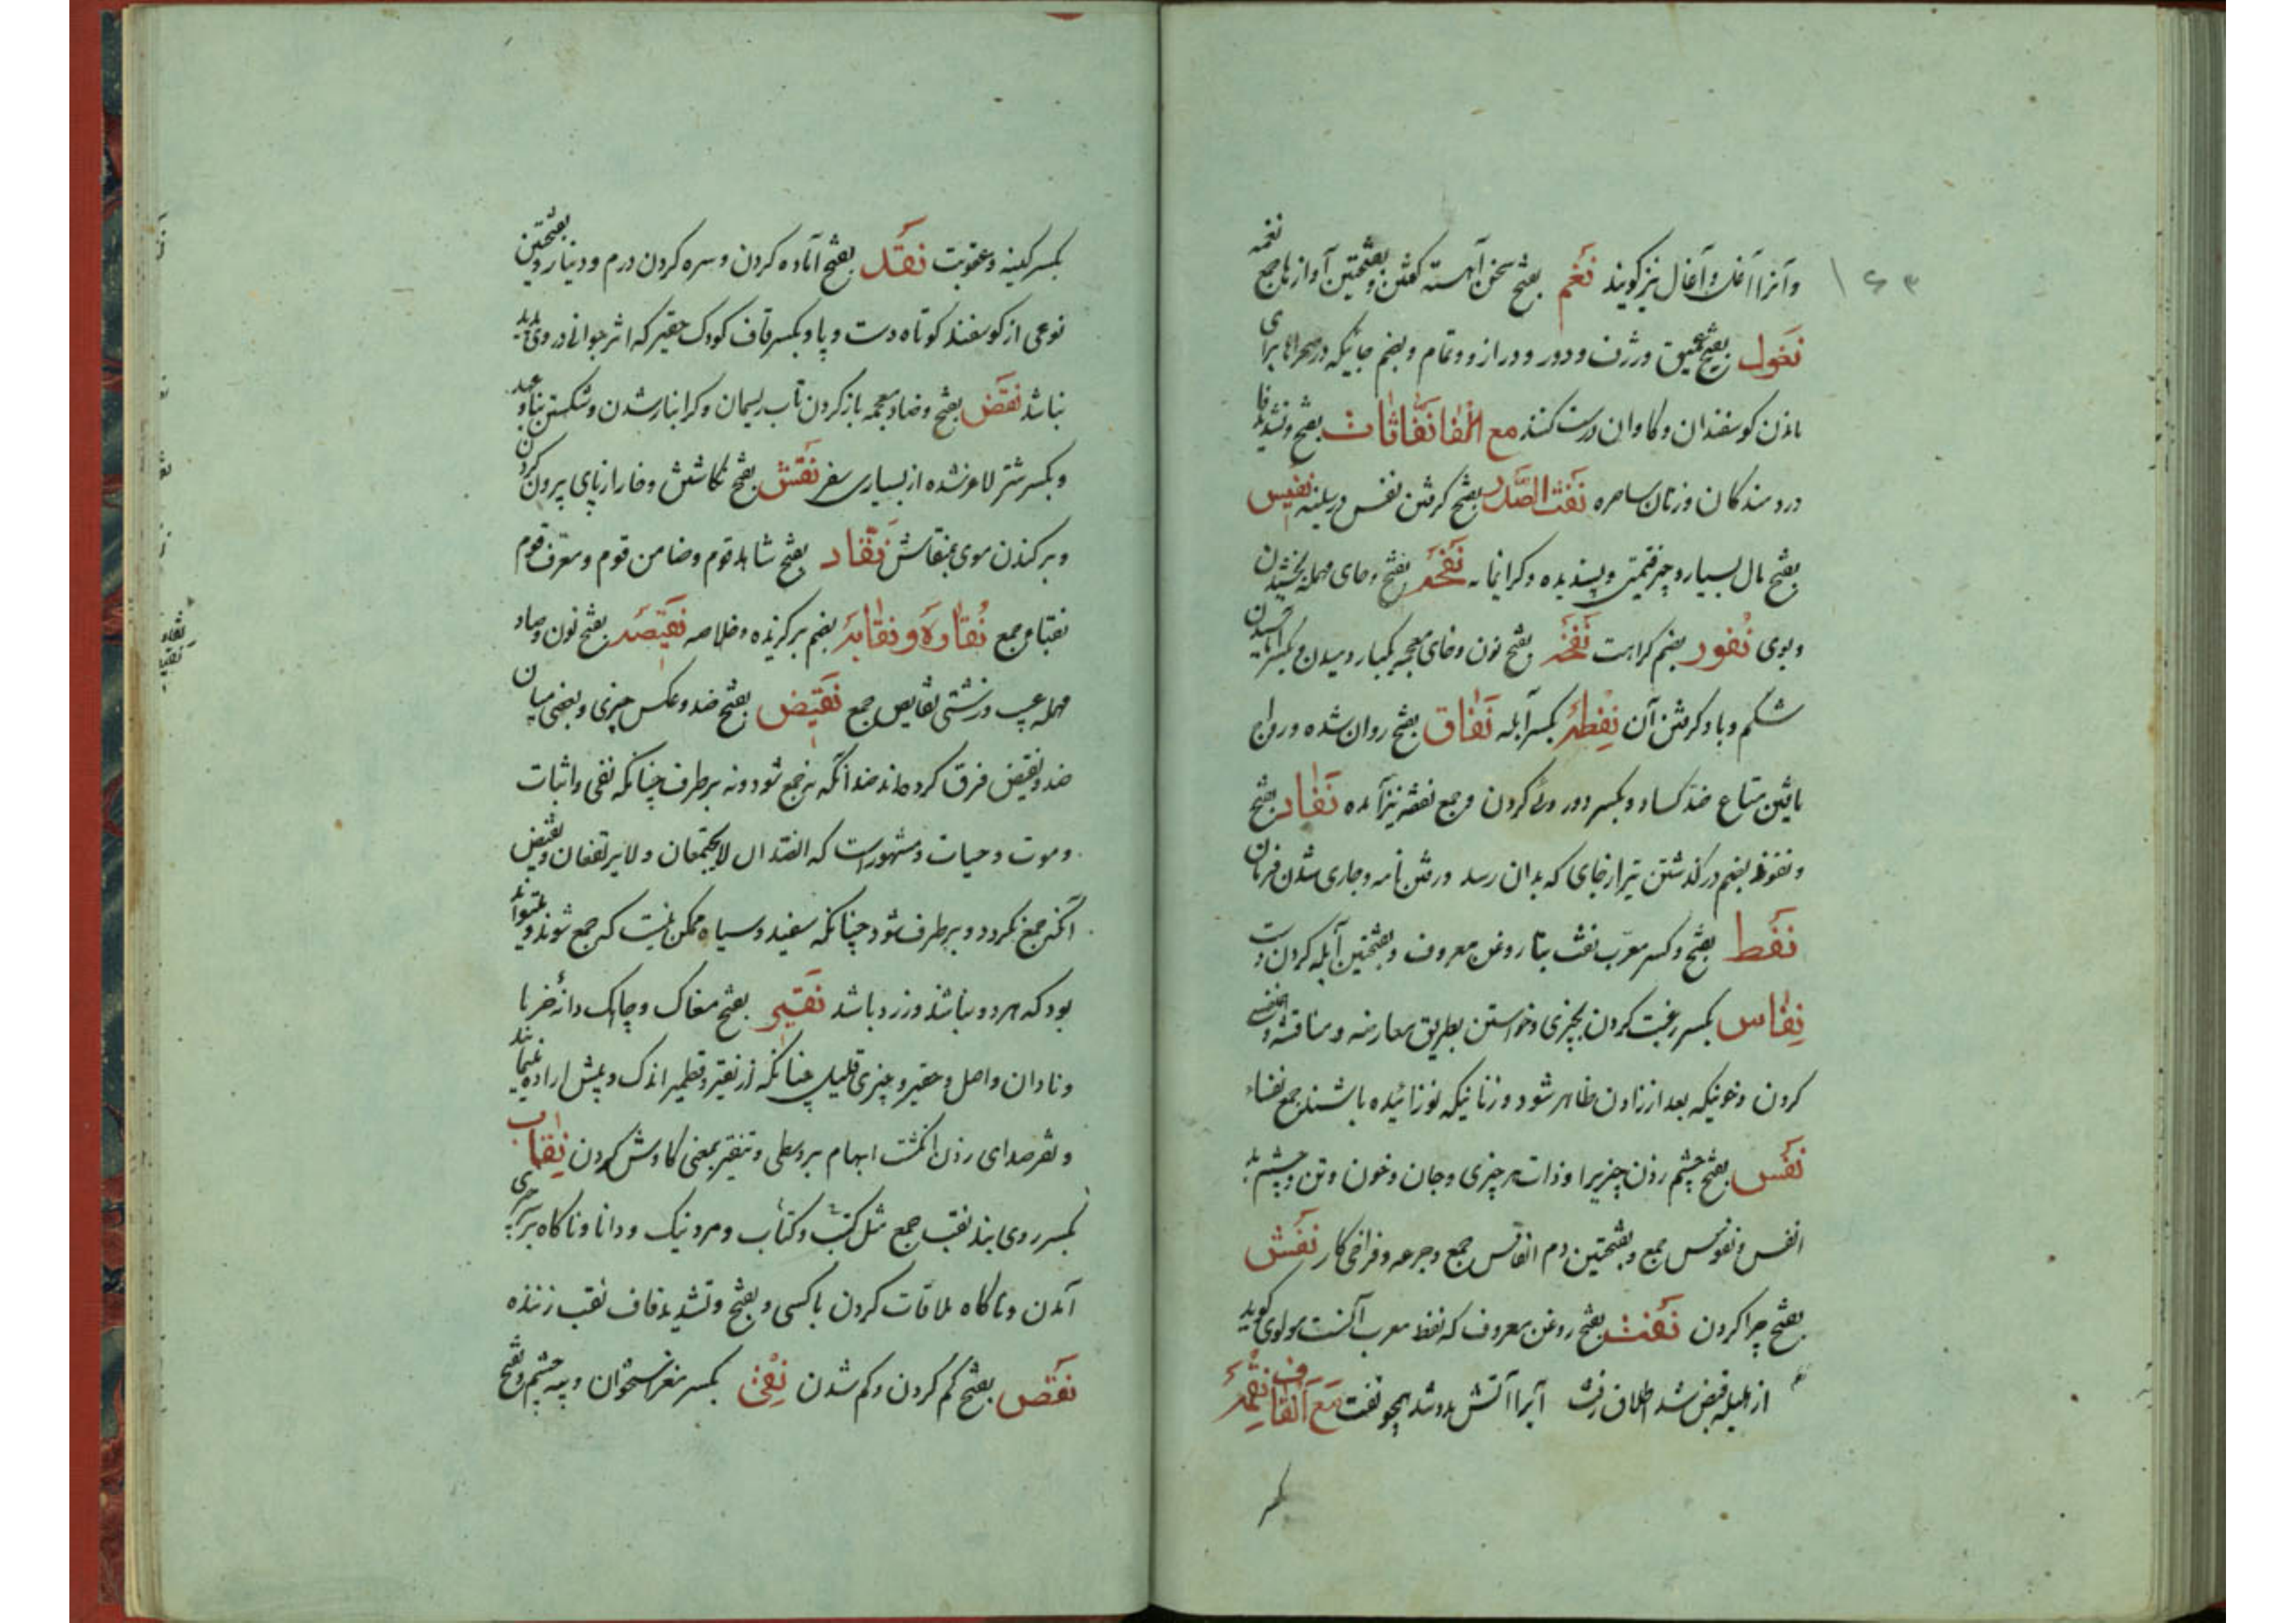 ۱۶۳
وآنرا آغل و آغال نیز کویند نَغم بفتح سخن آهسته کفتن و بفتحتین آوازها جمع نغمه
نَغول بفتح عمیق و ژرف و دور و دراز و تمام و بضم جائیکه در صحراها برای
ماندن کوسفندان و کاوان درست کنند مع الفا نَفّاثات بفتح و تشدید فا
دردمندکان و زنان ساحره نَفث الصَّدر بفتح کرفتن نفس در سینه نَفیس
بفتح مال بسیار و چیز قیمتی و پسندیده و کرانمایه نَفحَه بفتح و حای مهمله بخشیدن
و بوی نُفور بضم کراهت نَفخَه بفتح نون و خای معجمه یکبار دمیدن و بکسر آماسیدن
شکم و باد کرفتن آن نِفطَه بکسر آبله نَفاق بفتح روان شده و رواج
یافتن متاع ضد کساد و بکسر دور وئی کردن و جمع نفقه نیز آمده نَفاد بفتح
و نفوذ بضم در کذشتن تیر از جای که بدان رسد و رفتن نامه و جاری شدن فرمان
نَفط بفتح و کسر معرّب نفت بتا روغن معروف و بفتحتین آبله کردن دست
نِفاس بکسر رغبت کردن بچیزی و خواستن بطریق معارضه و مناقشه و
کردن و خونیکه بعد از زادن ظاهر شود و زنانیکه نوزائیده باشند جمع نفساء
نَفس بفتح چشم زدن چیزیرا و ذات هر چیزی و جان و خون و تن و چشم بد
انفس و نفوس جمع و بفتحتین دم انفاس جمع و جرعه و فراخی کار نَفش
بفتح چرا کردن نَفت بفتح روغن معروف که نفط معرب آنست مولوی کوید
از هلیله قبض شد اطلاق رفت آب را آتش مدد شد همچو نفت مَع القاف نِقمَه
بکسر
بکسر کینه و عقوبت نَقد بفتح آماده کردن و سره کردن درم و دینار و بفتحتین
نوعی از کوسفند کوتاه دست و پا و بکسر قاف کودک حقیر که اثر جوانی در وی پدید
نباشد نَقض بفتح و ضاد معجمه باز کردن تاب ریسمان و کرانبار شدن و شکستن بنا و عهد
و بکسر شتر لاغر شده از بسیاری سفر نَقش بفتح نکاشتن و خار از پای بیرون کردن
و برکندن موی بمنقاش نَقّاد بفتح شاهد قوم و ضامن قوم و معرّف قوم
نقباء جمع نُقاوَة و نقایَه بضم برکزیده و خلاصه نَقیصَه بفتح نون و صاد
مهمله عیب و زشتی نقایص جمع نَقیض بفتح ضد و عکس چیزی و بعضی میان
ضد و نقیض فرق کرده‌اند ضد آنکه نه جمع شود و نه برطرف چنانکه نفی و اثبات
و موت و حیات و مشهور است که الضدان لایجتمعان و لایرتفعان و نقیض
آنکه جمع نکردد و برطرف شود چنانکه سفید و سیاه ممکن نیست که جمع شوند و میتواند
بود که هر دو نباشند و زرد باشد نَقیر بفتح مغاک و چاک دانهٔ خرما
و نادان و اصل و حقیر و چیزی قلیل چنانکه از نقیر و قطمیر اندک و بیش اراده مینمایند
و نقر صدای زدن انکشت ابهام بر وسطی و تنقیر بمعنی کاوش کردن نِقاب
بکسر روی بند نقب جمع مثل کتب و کتاب و مرد نیک و دانا و ناکاه بر سر چیزی
آمدن و ناکاه ملاقات کردن با کسی و بفتح و تشدید قاف نقب زننده
نَقص بفتح کم کردن و کم شدن نِقی بکسر مغز استخوان و پیه چشم و بفتح